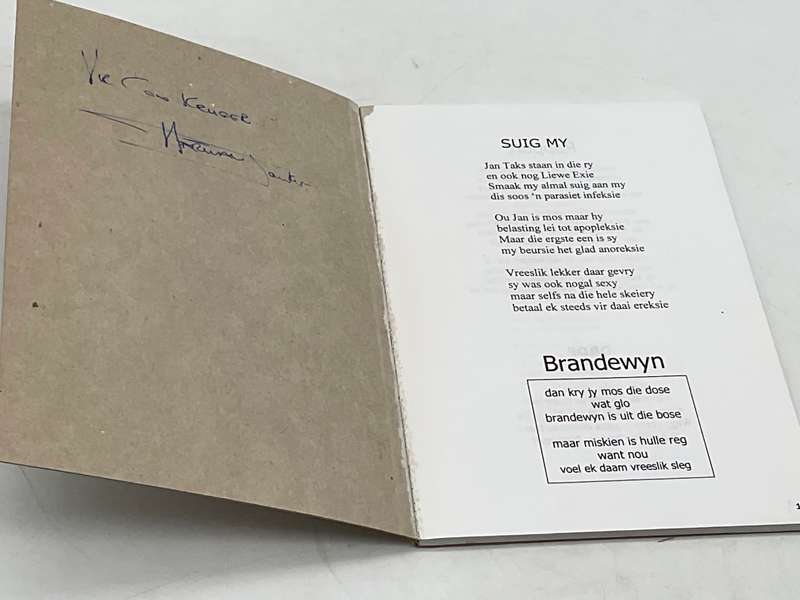 SUIG MY
Jan Taks staan in die ry
en ook nog Liewe Exie
Smaak my almal suig aan my
dis soos 'n parasiet infeksie
Ou Jan is mos maar hy
belasting lei tot apopleksie
Maar die ergste een is sy
my beursie het glad anoreksie
Vreeslik lekker daar gevry
sy was ook nogal sexy
maar selfs na die hele skeiery
betaal ek steeds vir daai ereksie
Brandewyn
dan kry jy mos die dose
wat glo
brandewyn is uit die bose
maar miskien is hulle reg
want nou
voel ek daam vreeslik sleg
1